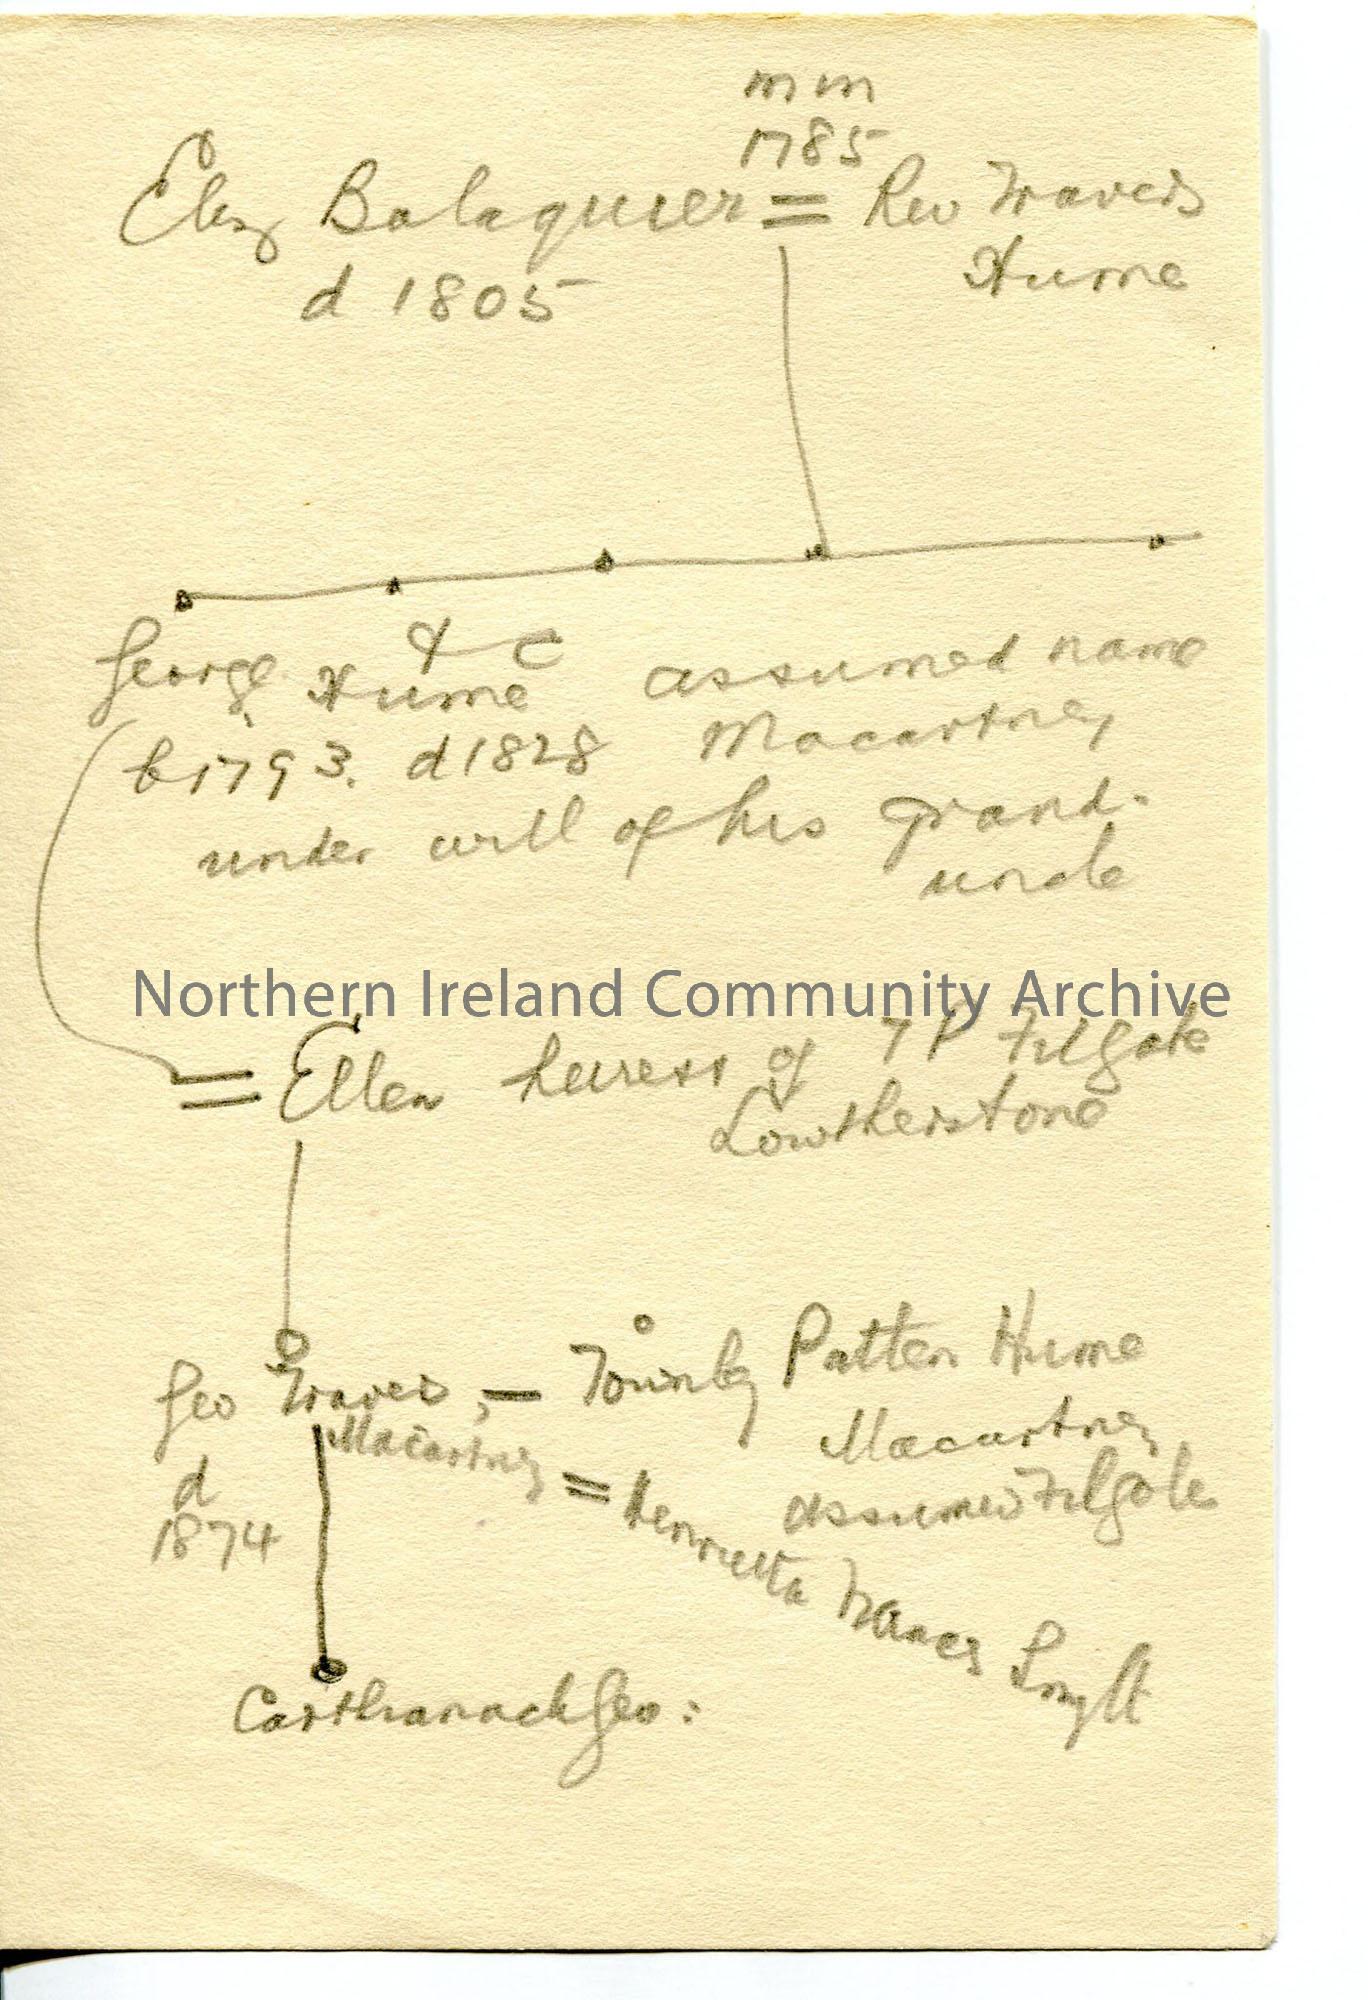 m m
1785
Eliz Balaquier = Rev Travers
Hume
d 1805
& c
George Hume assumed name
b 1793. d 1828 Macartney
under will of his grand-
uncle
Northern Ireland Community Archive
= Ellen heiress of T P Filgate
Lowtherstone
Geo Travers, — Townley Patten Hume
Macartney
Macartney
d
1874
assumed Filgate
= Henrietta Frances Smyth
Carthanach Geo: